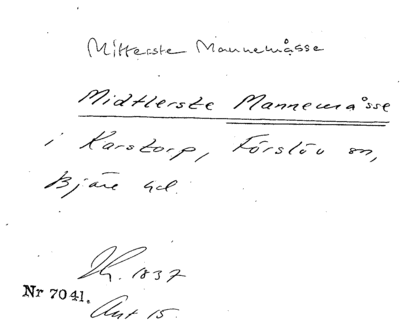 Mitterste Mannemåsse
Midtlerste Mannemåsse
i Karstorp, Förslöv sn,
Bjäre hd.
Th. 1837
Nr 7041.
Avt 15.